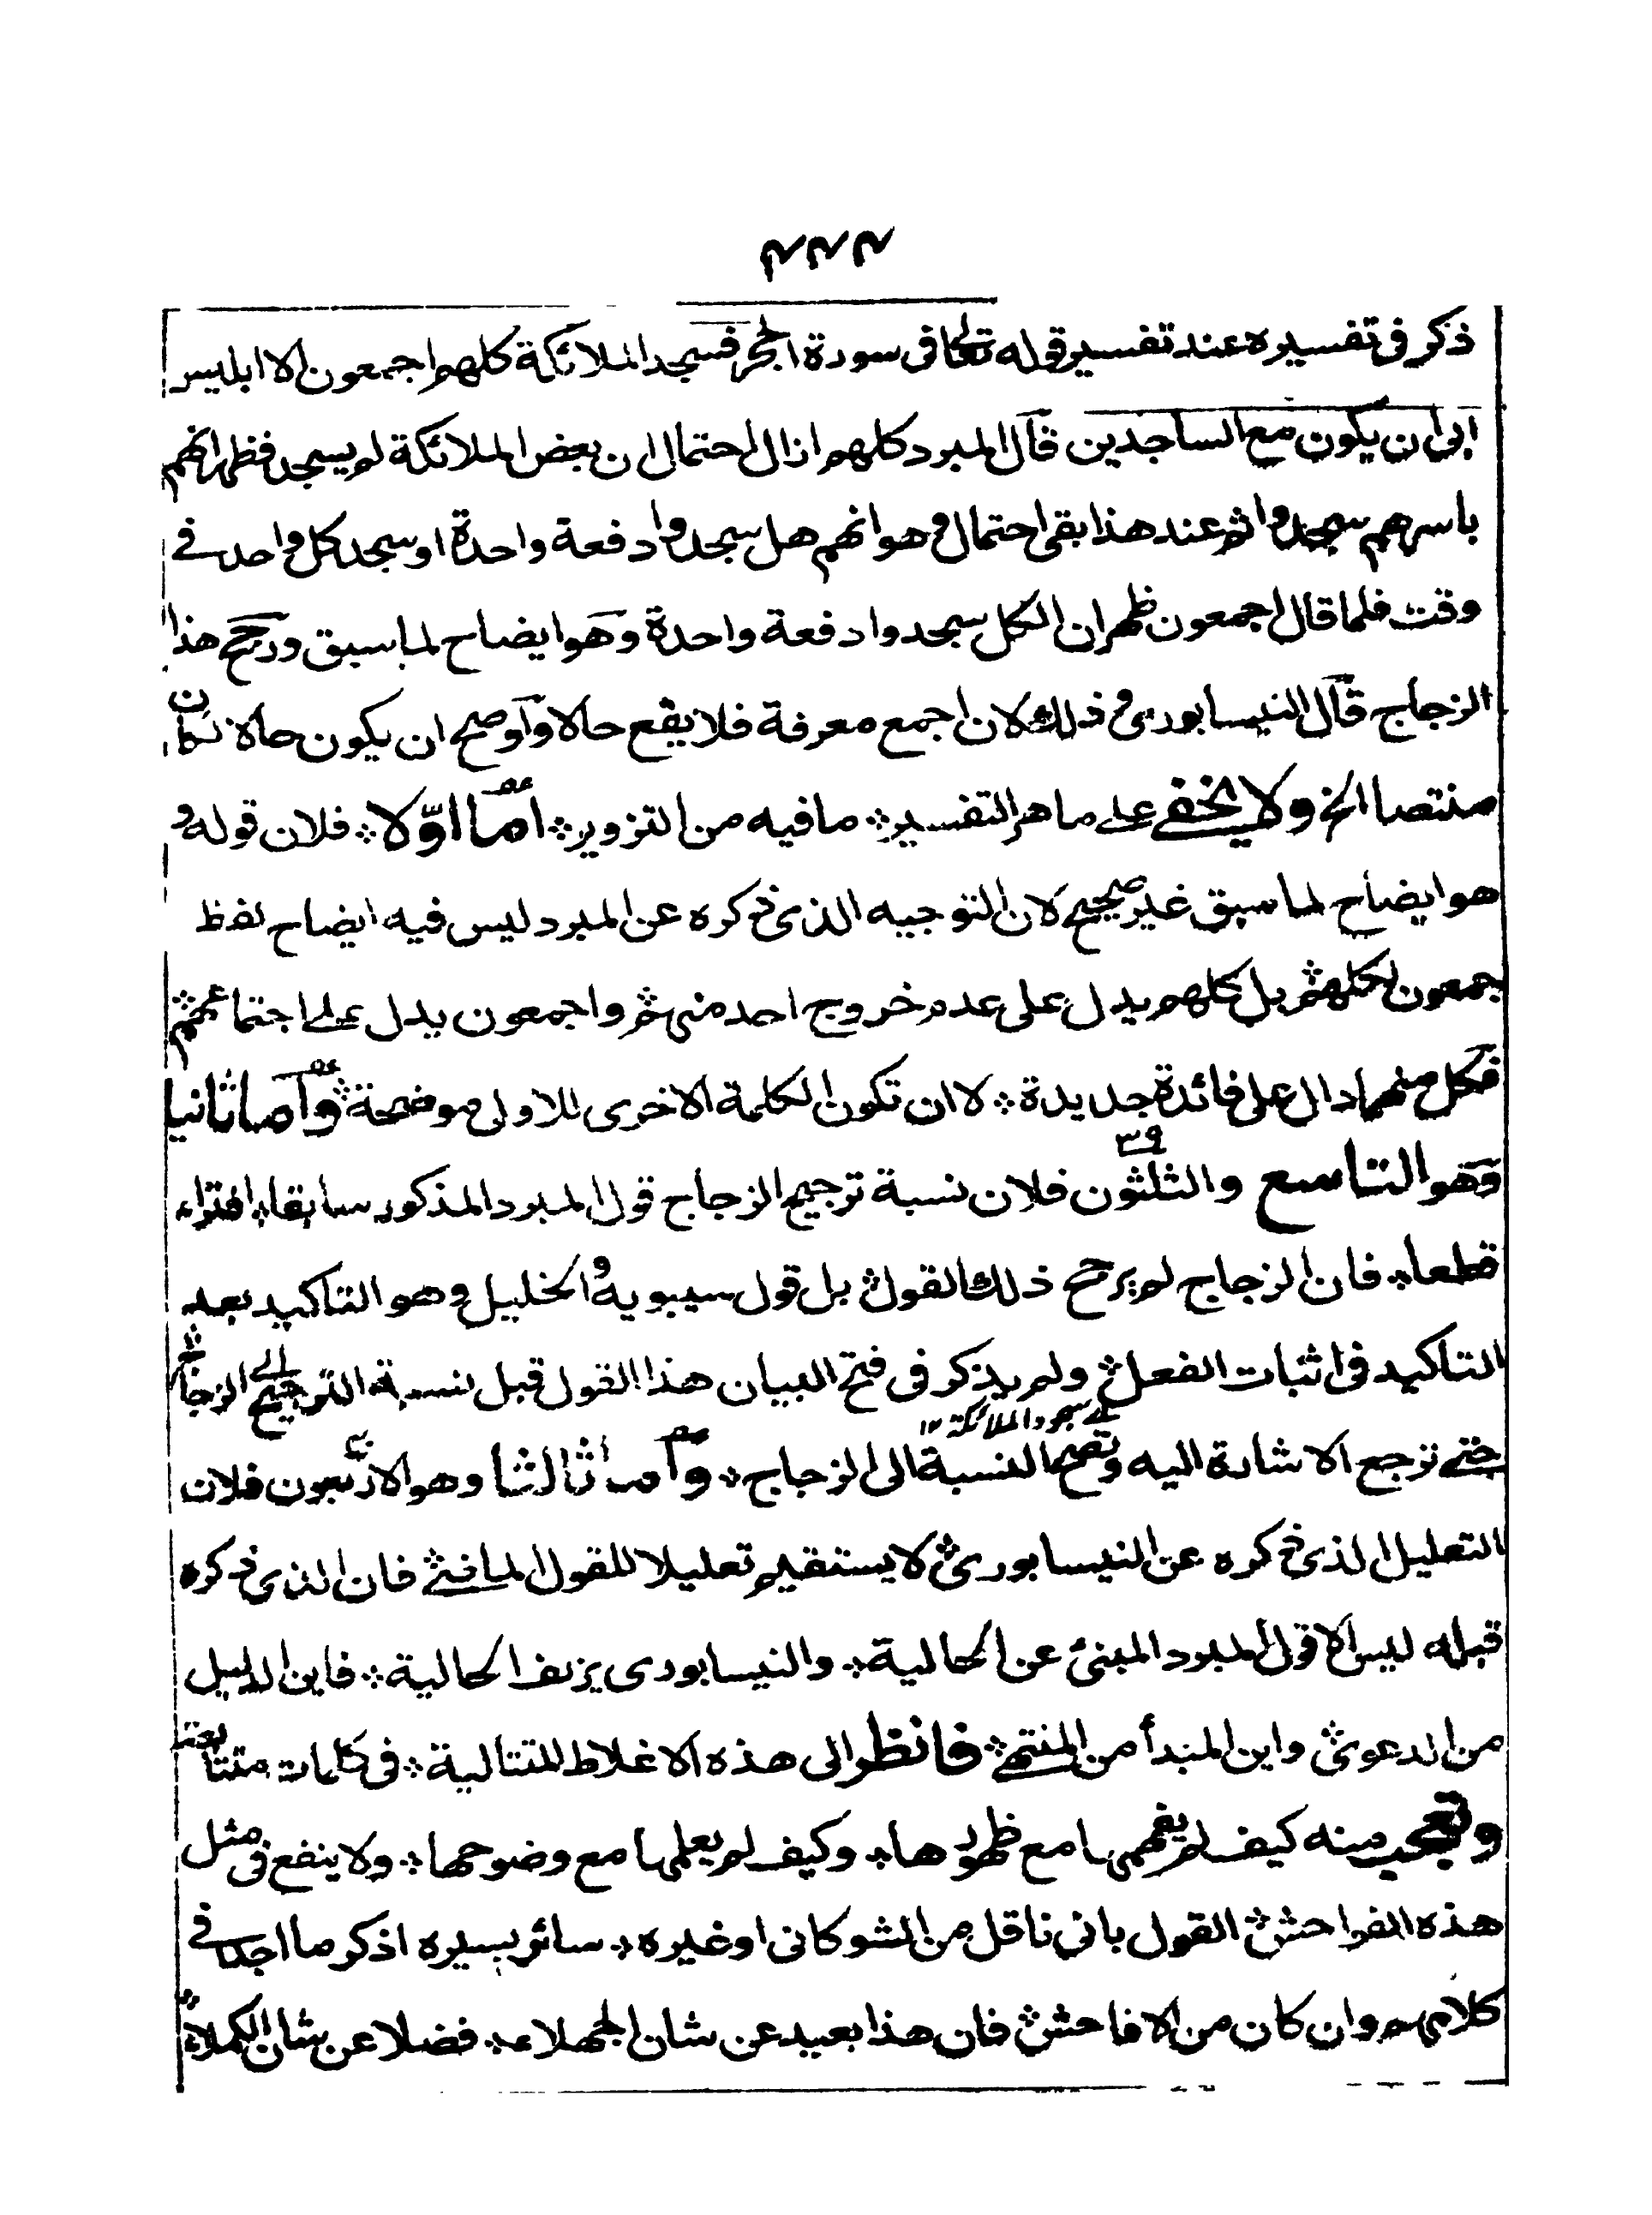 ٢٢٢
ذكر في تفسيره عند تفسير قوله تعالى في سورة الحجر فسجد الملائكة كلهم اجمعون الا ابليس
ابى ان يكون مع الساجدين قال المبرد كلهم ازال احتمال ان بعض الملائكة لم يسجد فظهر انهم
باسرهم سجدوا ثم عند هذا بقي احتمال وهو انهم هل سجدوا دفعة واحدة او سجد كل واحد في
وقت فلما قال اجمعون ظهر ان الكل سجدوا دفعة واحدة وهو ايضاح لما سبق ورجح هذا
الزجاج قال النيسابوري وذلك لان اجمع معرفة فلا يقع حالا ولو صح ان يكون حالا لكان
منتصبا الخ ولا يخفى على ماهر التفسير ما فيه من التزوير اما اولا فلان قوله و
هو ايضاح لما سبق غير صحيح لان التوجيه الذي ذكره عن المبرد ليس فيه ايضاح لفظ
اجمعون لكلهم بل كلهم يدل على عدم خروج احد منهم واجمعون يدل على اجتماعهم
فكل منهما دال على فائدة جديدة لا ان تكون الكلمة الاخرى للاولى موضحة واما ثانيا
وهو التاسع والثلثون ٣٩ فلان نسبة ترجيح الزجاج قول المبرد المذكور سابقا افتراء
قطعا فان الزجاج لم يرجح ذلك القول بل قول سيبويه والخليل وهو التاكيد بعد
التاكيد في اثبات الفعل ولم يذكر في فتح البيان هذا القول قبل نسبة الترجيح الى الزجاج
اے سجود الملائكة ١٢
حتى ترجع الاشارة اليه وتصح النسبة الى الزجاج واما ثالثا وهو الاربعون فلان
التعليل الذي ذكره عن النيسابوري لا يستقيم تعليلا للقول الماضي فان الذي ذكره
قبله ليس الا قول المبرد المبنئ عن الحالية والنيسابوري يزيف الحالية فاين الدليل
من الدعوى واين المبدأ من المنتهى فانظر الى هذه الاغلاط المتتالية في كلمات متتابعة
وتعجب منه كيف لم يفهمها مع ظهورها وكيف لم يعلمها مع وضوحها ولا ينفع في مثل
هذه الفواحش القول باني ناقل من الشوكاني او غيره سائر بسيره اذكر ما اجد في
كلامهم وان كان من الافاحش فان هذا بعيد عن شان الجهلاء فضلا عن شان الكملاء